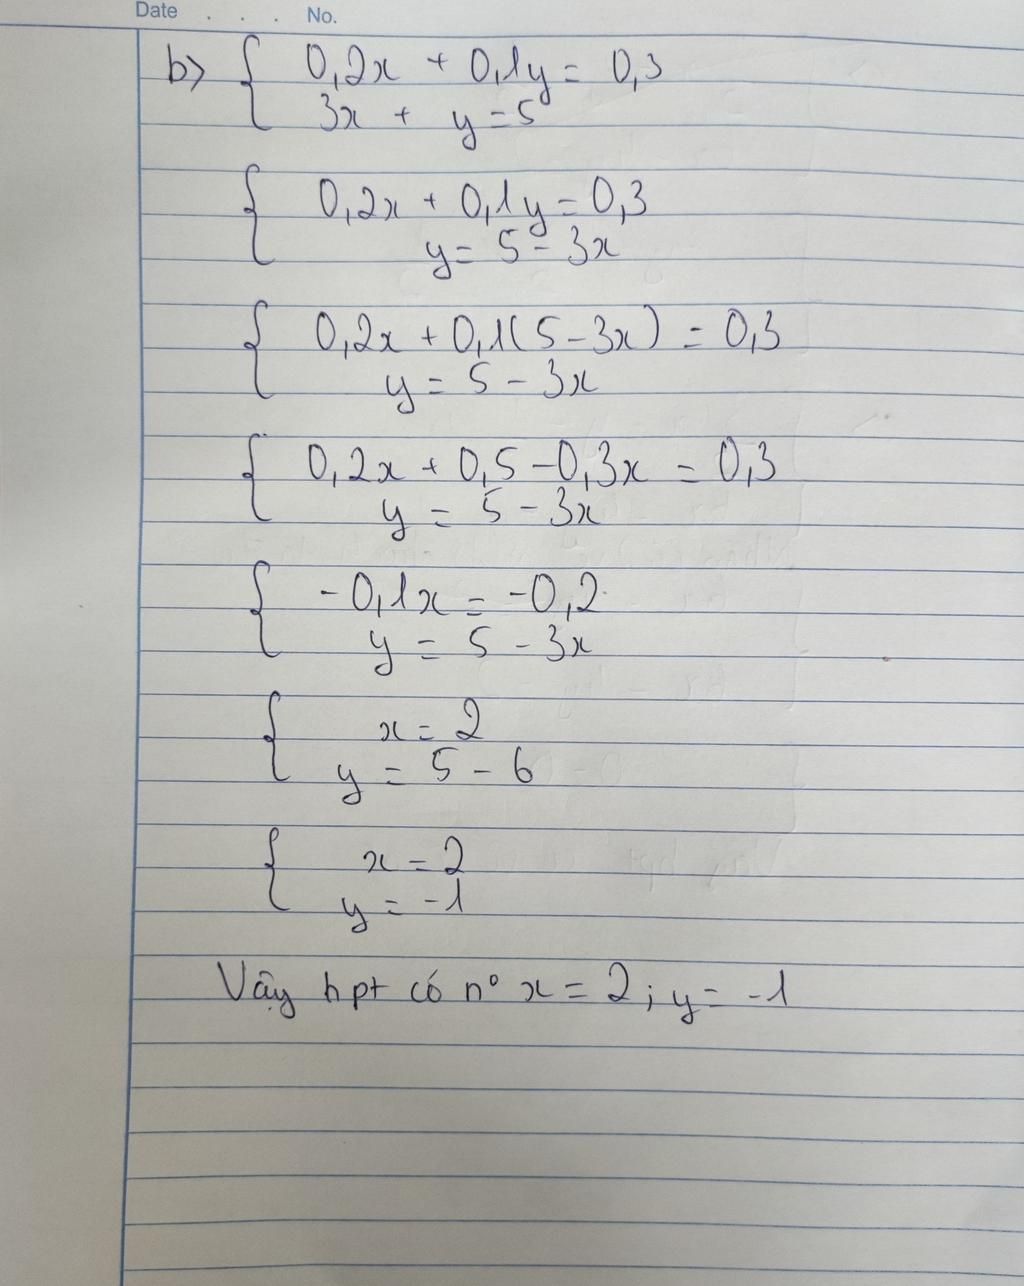 Date . . . No.
b> { 0,2x + 0,1y = 0,3
3x + y = 5
{ 0,2x + 0,1y = 0,3
y = 5 - 3x
{ 0,2x + 0,1(5 - 3x) = 0,3
y = 5 - 3x
{ 0,2x + 0,5 - 0,3x = 0,3
y = 5 - 3x
{ -0,1x = -0,2
y = 5 - 3x
{ x = 2
y = 5 - 6
{ x = 2
y = -1
Vậy hpt có nº x = 2 ; y = -1